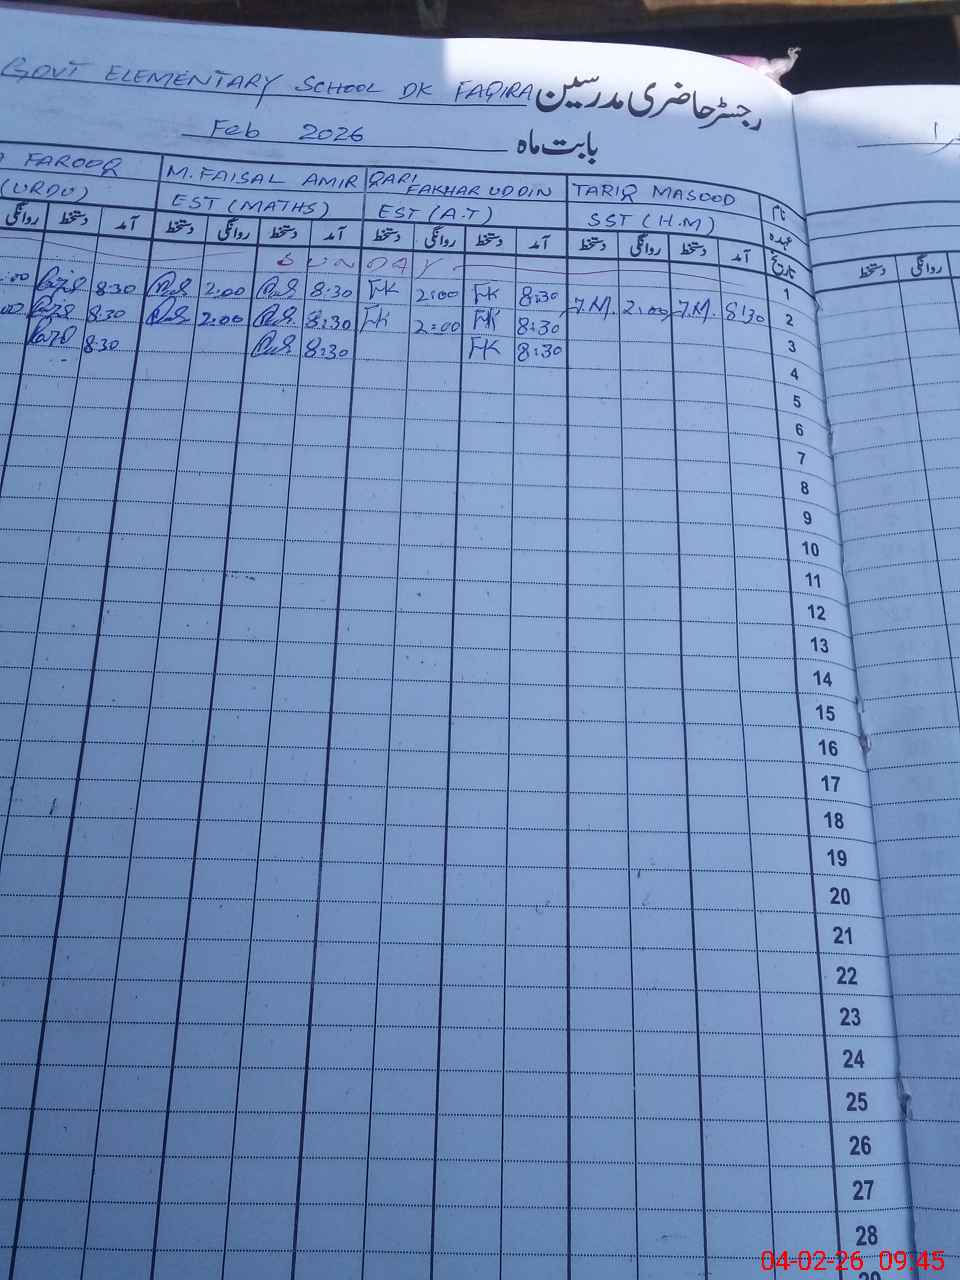 GOVT ELEMENTARY SCHOOL DK FAQIRA رجسٹر حاضری مدرسین
Feb 2026 بابت ماہ
نام TARIQ MASOOD QARI FAKHAR UDDIN M. FAISAL AMIR FAROOQ
عہدہ SST (H.M) EST (A.T) EST (MATHS) (URDU)
تاریخ آمد دستخط روانگی دستخط آمد دستخط روانگی دستخط آمد دستخط روانگی دستخط آمد دستخط روانگی
روانگی دستخط
1 SUNDAY
2 8:30 T.M. 2:00 T.M. 8:30 FK 2:00 FK 8:30 2.00 8:30 :00
3 8:30 FK 2:00 FK 8:30 2:00 8:30 00
4 8:30 FK 8:30 8:30
5
6
7
8
9
10
11
12
13
14
15
16
17
18
19
20
21
22
23
24
25
26
27
28
29
04-02-26 09:45